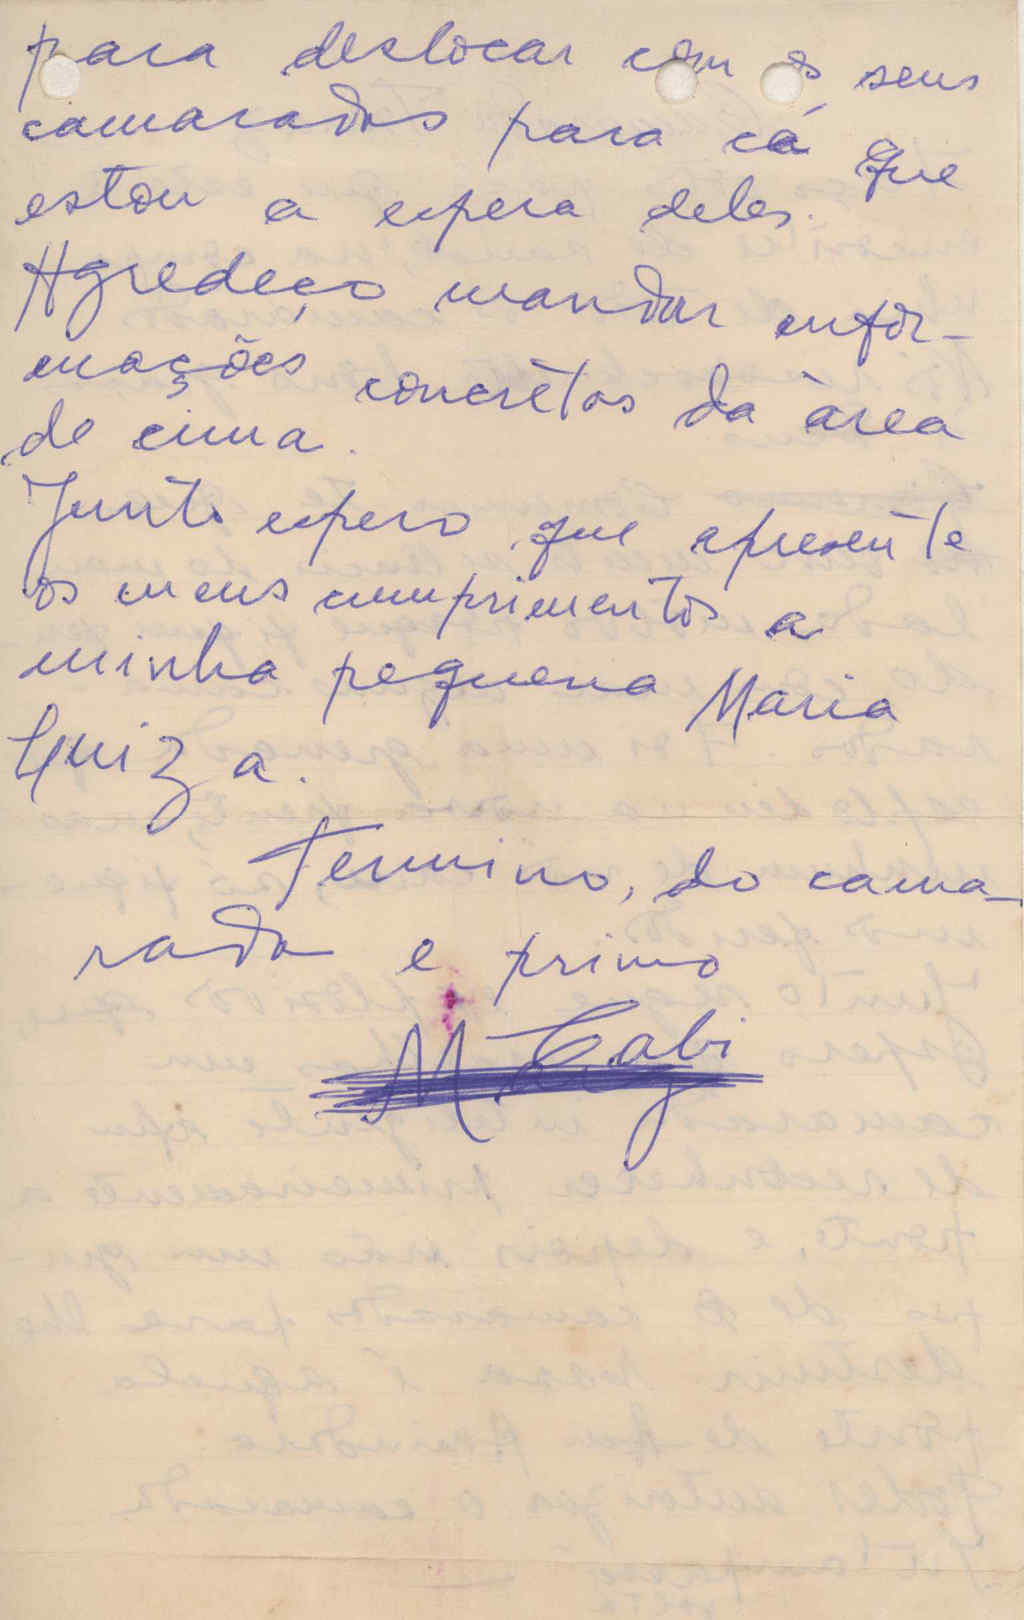 para deslocar com os seus
camaradas para cá que
estou a espera deles.
Agredeço mandar enfor-
mações concrêtas da àrea
de cima.
Junto espero que apresente
os meus cumprimentos a
minha pequena Maria
Luiza.
Termino, do cama-
rada e primo
M Gabi